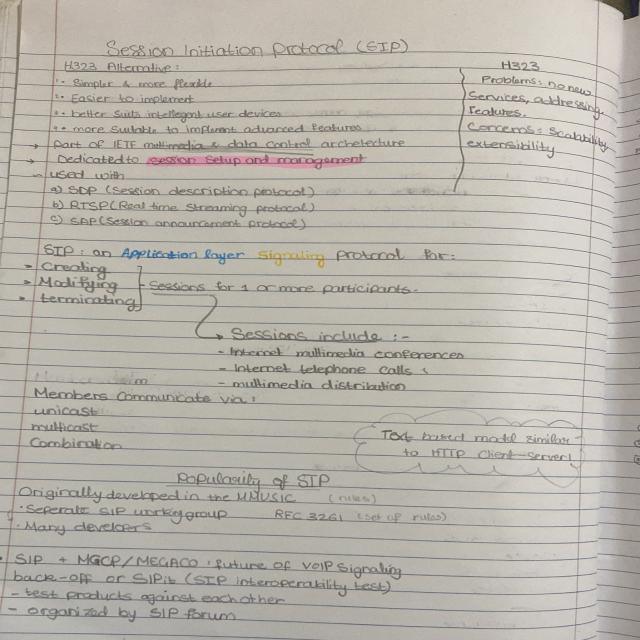 Session Initiation Protocol (SIP)
H323 Alternative:
Simpler & more flexible
Easier to implement
better suits intellegnt user devices
more suitable to implment advanced features
→ Part of IETF multimedia & data control archetecture
→ Dedicated to session setup and management
used with
a) SDP (Session description protocol)
b) RTSP (Real time streaming protocol)
c) SAP (Session announcement protocol)
H323
Problems: no new
Services, addressing,
features.
Concerns: Scalability
extensibility
SIP: an Application layer Signaling protocol for:
Creating
Modifying
terminating
Sessions for 1 or more participants.
Sessions include :-
- Internet multimedia conferences
- Internet telephone calls
- multimedia distribution
Members Communicate via:
unicast
multicast
Combination
Text based model similar
to HTTP Client-server!
Popularity of SIP
Originally developed in the MMUSIC (rules)
· Seperate SIP working group RFC 3261 (set of rules)
· Many develpers
· SIP + MGCP/MEGACO : future of VOIP Signaling
back-off or SIPit (SIP interoperability test)
- test products against eachother
- organized by SIP forum